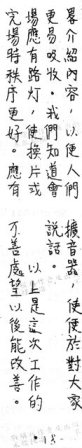 畧介紹內容，以便人們
更易吸收。我們知道會
場應有路灯，使換片或
完場時秩序更好。應有
擴音器，使便於對大家
說話。
以上是這次工作的
不善處望以後能改善。
·18